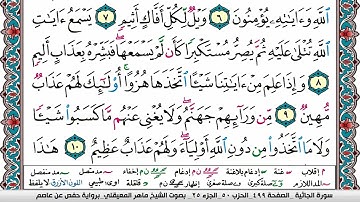 ٱللَّهِ وَءَايَٰتِهِۦ يُؤْمِنُونَ ٦ وَيْلٌ لِّكُلِّ أَفَّاكٍ أَثِيمٍ ٧ يَسْمَعُ ءَايَٰتِ
ٱللَّهِ تُتْلَىٰ عَلَيْهِ ثُمَّ يُصِرُّ مُسْتَكْبِرًا كَأَن لَّمْ يَسْمَعْهَا فَبَشِّرْهُ بِعَذَابٍ أَلِيمٍ
٨ وَإِذَا عَلِمَ مِنْ ءَايَٰتِنَا شَيْـًٔا ٱتَّخَذَهَا هُزُوًا أُو۟لَٰٓئِكَ لَهُمْ عَذَابٌ
مُّهِينٌ ٩ مِّن وَرَآئِهِمْ جَهَنَّمُ وَلَا يُغْنِى عَنْهُم مَّا كَسَبُوا۟ شَيْـًٔا
وَلَا مَا ٱتَّخَذُوا۟ مِن دُونِ ٱللَّهِ أَوْلِيَآءَ وَلَهُمْ عَذَابٌ عَظِيمٌ ١٠ هَٰذَا
سورة الجاثية . الصفحة ٤٩٩ الحزب ٥٠ . الجزء ٢٥ . بصوت الشيخ ماهر المعيقلي . برواية حفص عن عاصم